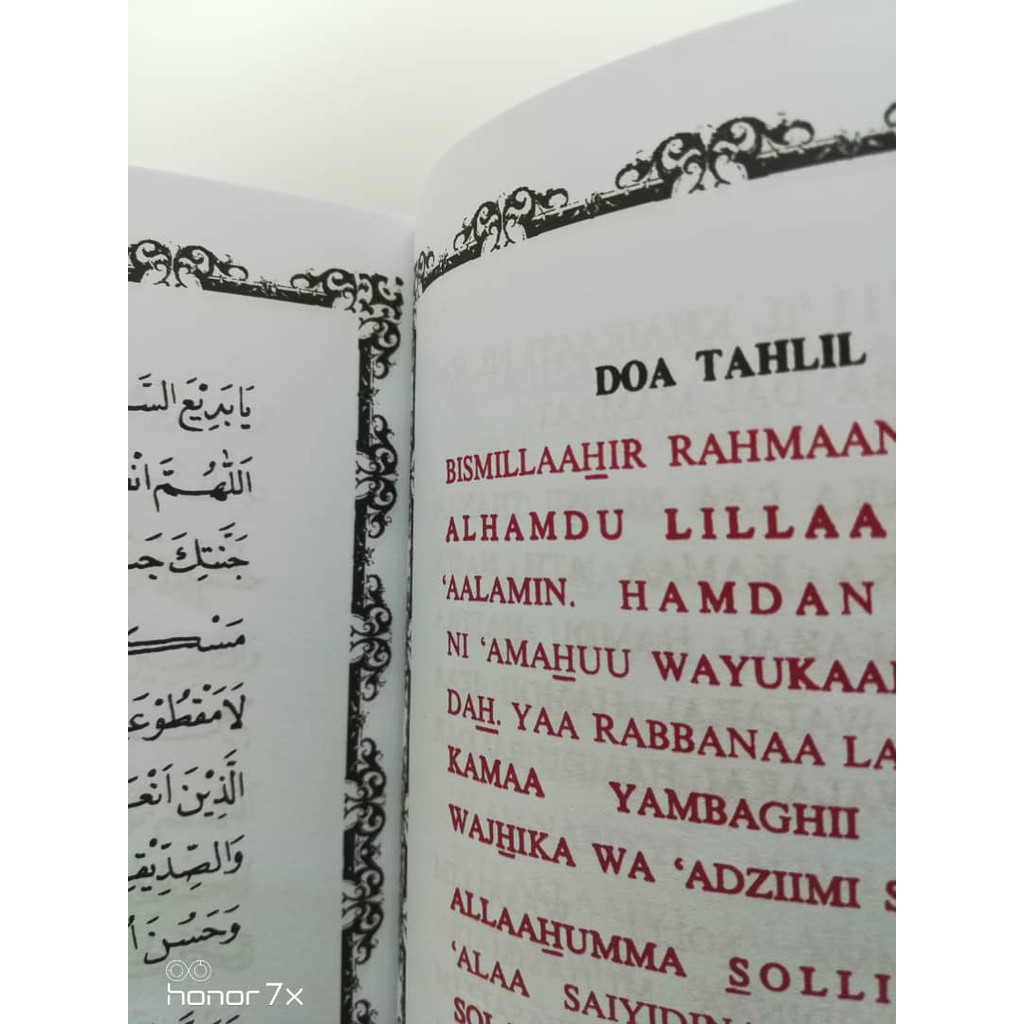 يَا بَدِيْعَ
اَللّٰهُمَّ
جَنَّتِكَ
لَا مَقْطُوْعَ
الَّذِيْنَ اَنْعَ
وَالصِّدِّيْقِ
وَحَسُنَ
DOA TAHLIL
BISMILLAAHIR RAHMAAN
ALHAMDU LILLAA
‘AALAMIN. HAMDAN
NI ‘AMAHUU WAYUKAA
DAH. YAA RABBANAA LA
KAMAA YAMBAGHII
WAJHIKA WA ‘ADZIIMI S
ALLAAHUMMA SOLLI
‘ALAA SAIYIDIN
SOL
honor 7x